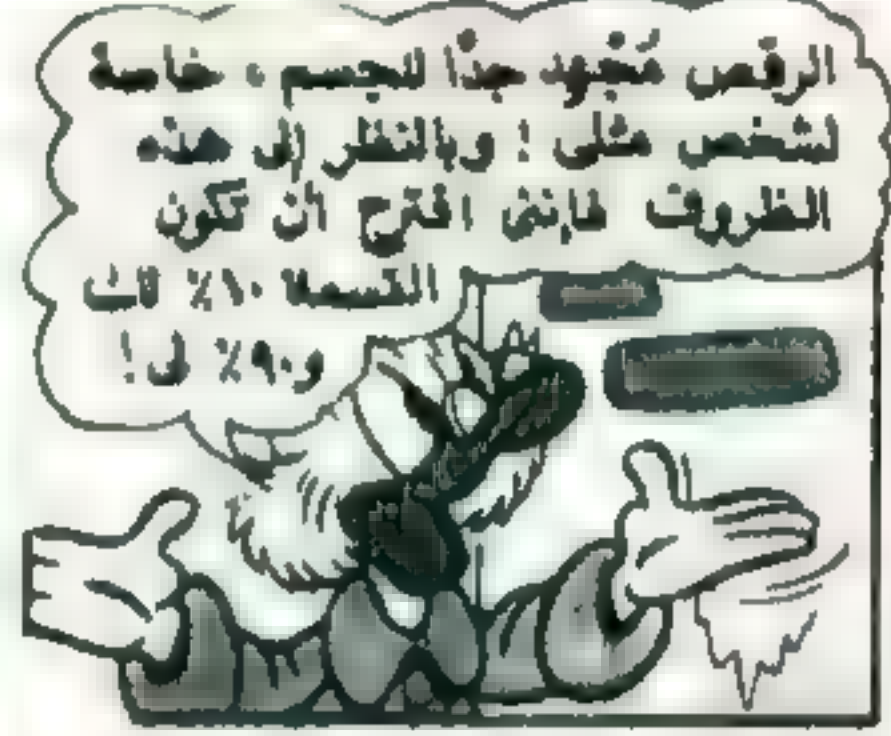 الرقص مُجهد جدًا للجسم ، خاصة
لشخص مثلى ! وبالنظر إلى هذه
الظروف فإننى اقترح ان تكون
القسمة ١٠٪ لك
و ٩٠٪ لى !